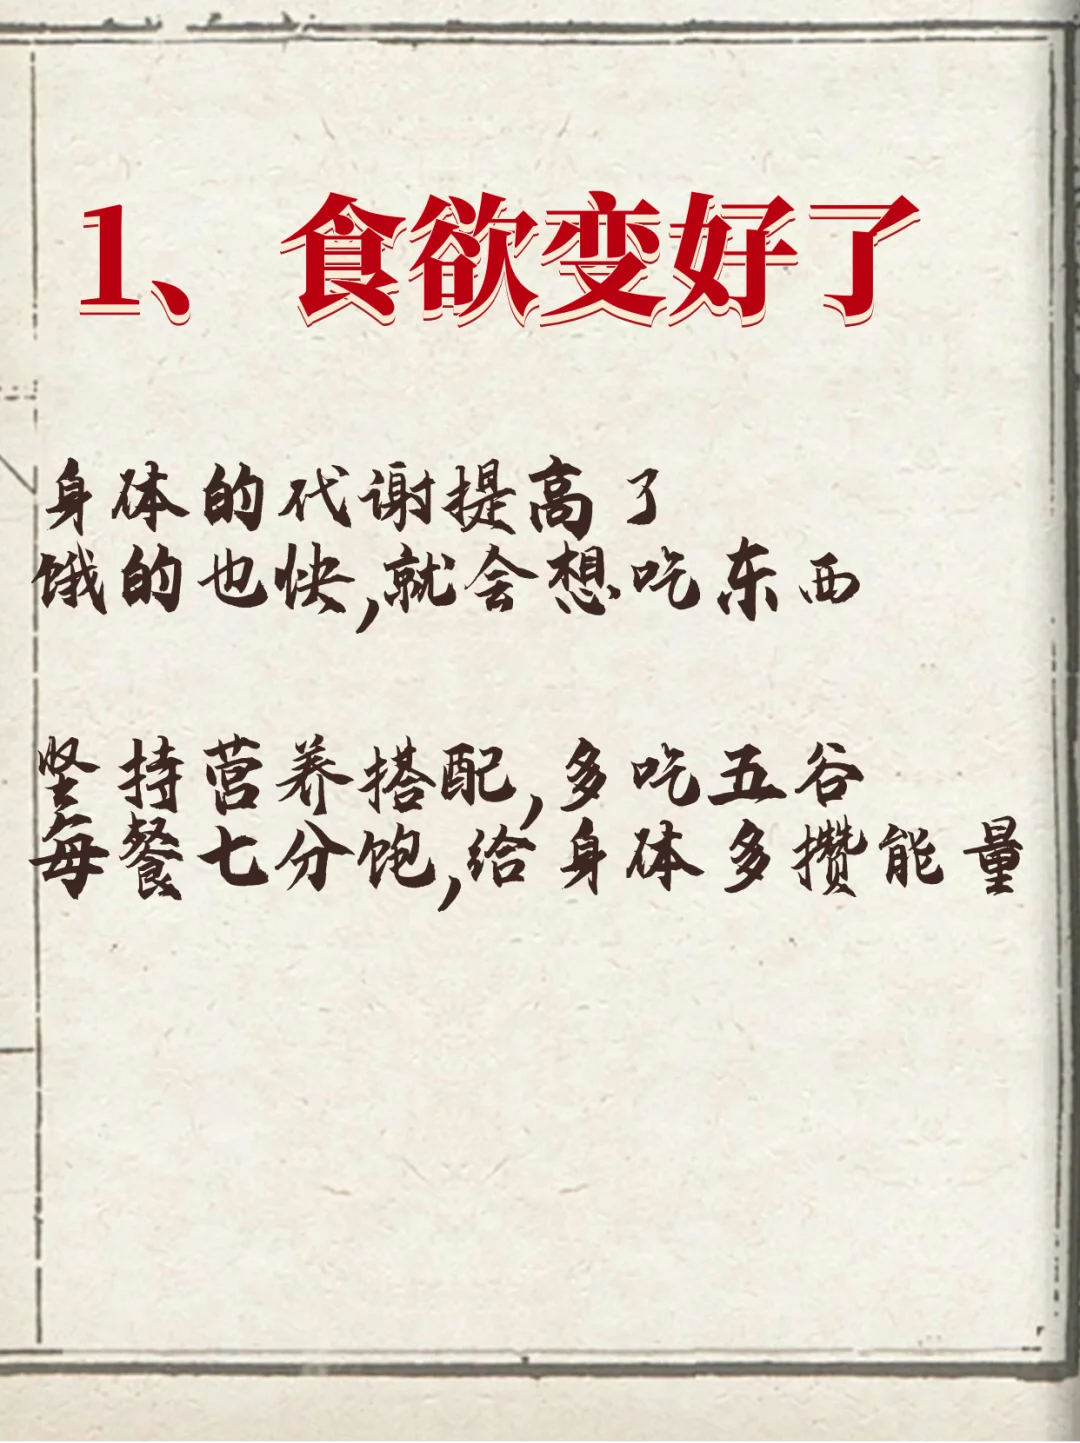 1、食欲变好了
身体的代谢提高了
饿的也快,就会想吃东西
坚持营养搭配,多吃五谷
每餐七分饱,给身体多攒能量